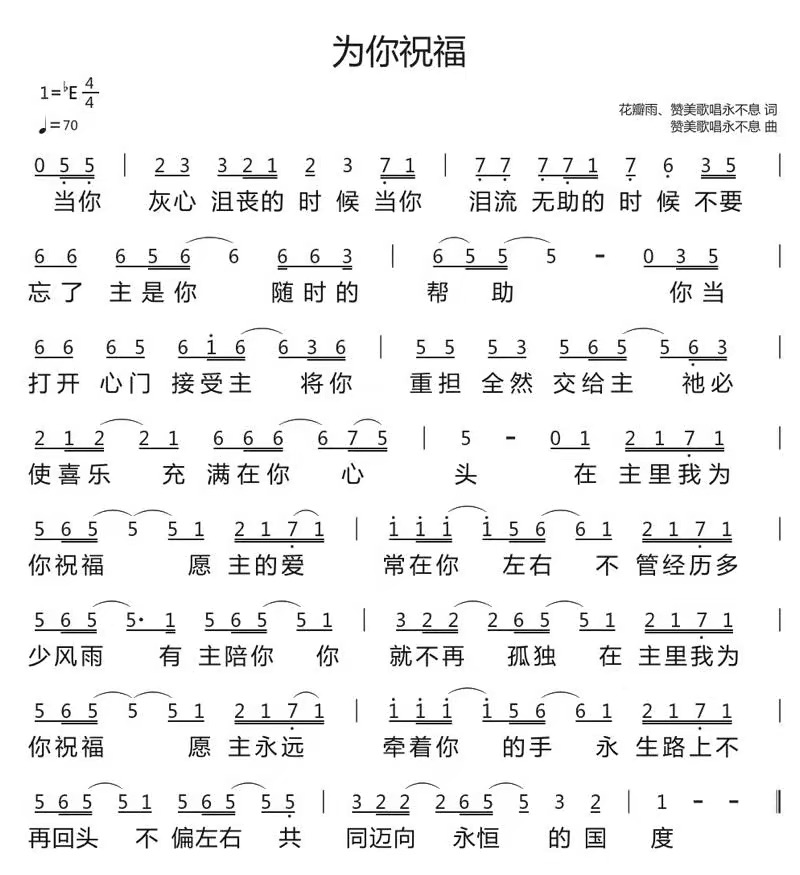 为你祝福
1=♭E 4/4
♩=70
花瓣雨、赞美歌唱永不息 词
赞美歌唱永不息 曲
0 5 5 | 2 3 3 2 1 2 3 7 1 | 7 7 7 7 1 7 6 3 5 |
当你 灰心 沮丧的 时 候 当你 泪流 无助的 时 候 不要
6 6 6 5 6 6 6 6 3 | 6 5 5 5 - 0 3 5 |
忘了 主是你 随时的 帮 助 你当
6 6 6 5 6 1 6 6 3 6 | 5 5 5 3 5 6 5 5 6 3 |
打开 心门 接受主 将你 重担 全然 交给主 祂必
2 1 2 2 1 6 6 6 6 7 5 | 5 - 0 1 2 1 7 1 |
使喜乐 充 满在你 心 头 在 主里我为
5 6 5 5 5 1 2 1 7 1 | 1 1 1 1 5 6 6 1 2 1 7 1 |
你祝福 愿 主的爱 常在你 左右 不 管经历多
5 6 5 5· 1 5 6 5 5 1 | 3 2 2 2 6 5 5 1 2 1 7 1 |
少风雨 有 主陪你 你 就不再 孤独 在 主里我为
5 6 5 5 5 1 2 1 7 1 | 1 1 1 1 5 6 6 1 2 1 7 1 |
你祝福 愿 主永远 牵着你 的手 永 生路上不
5 6 5 5 1 5 6 5 5 5 | 3 2 2 2 6 5 5 3 2 | 1 - - ‖
再回头 不 偏左右 共 同迈向 永恒 的 国 度